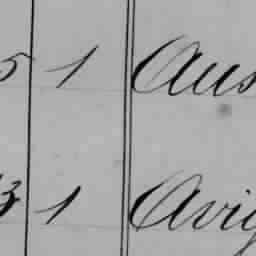 5 1 Aus
3 1 Avig